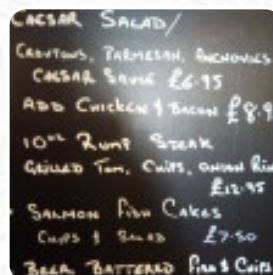 CAESAR SALAD/
CROUTONS, PARMESAN, ANCHOVIES
CAESAR SAUCE £6.95
ADD CHICKEN & BACON £8.9
10oz RUMP STEAK
GRILLED TOM, CHIPS, ONION RIN
£12.95
SALMON FISH CAKES
CHIPS & SALAD £7.50
BEER BATTERED FISH & CHIPS